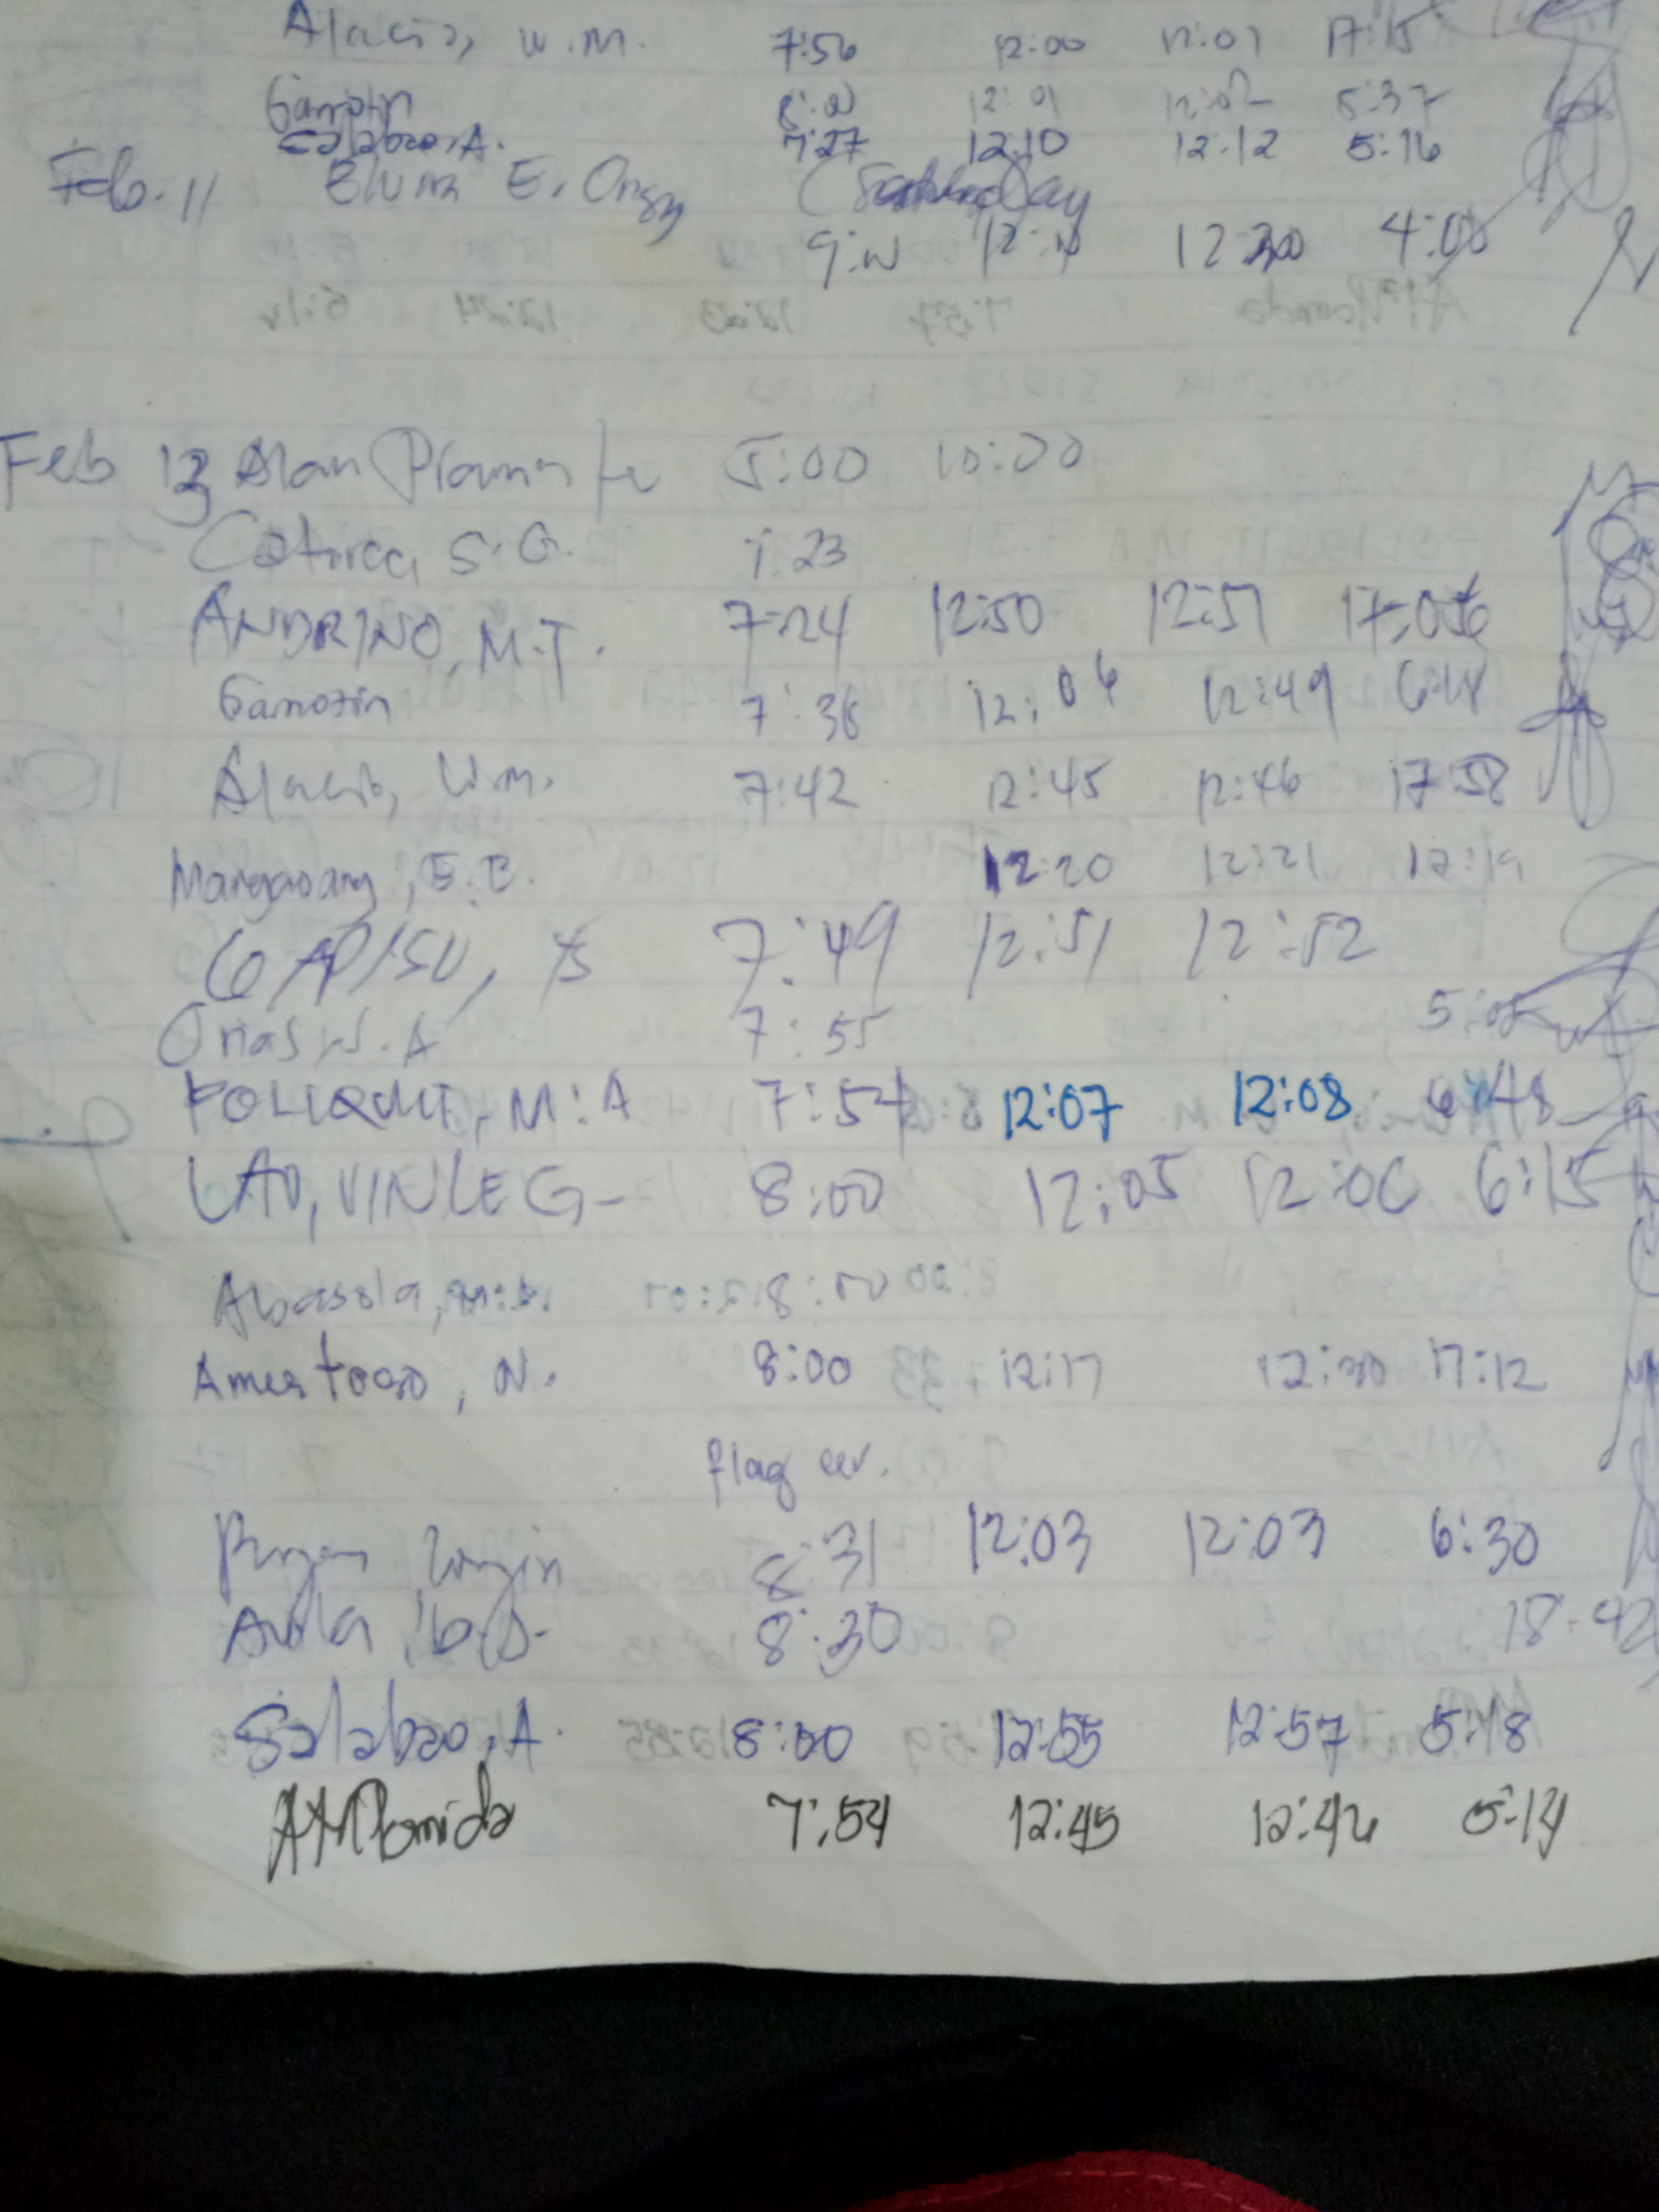 Alacio, W.M. 7:56 12:00 12:01 17:15
Gamotin 8:00 12:01 12:02 5:37
Salabao, A. 7:27 12:10 12:12 5:16
Feb. 11 E. (Saturday
12:30 4:00
Feb 13 Alan 5:00 10:00
S.G. 7:23
ANDRINO, M.T. 7:24 12:50 12:51 17:06
Gamotin 7:38 12:06 12:49
Alacio, W.M. 7:42 12:45 12:46 17:58
Mangaoang, E.E. 12:20 12:21 17:19
GAPISU, 7:49 12:51 12:52
Orias N.A 7:55 5:05
POLIQUIT, M.A 7:54 12:07 12:08 6:48
LAO, VINLE G- 8:00 12:05 12:06 6:15
Abasola, 8:00
Amestoso, N. 8:00 12:17 12:20 17:12
flag cer.
8:31 12:03 12:03 6:30
Avila, 8:30 18:42
Salabao, A. 8:00 12:55 12:57 5:18
7:54 12:45 12:46 5:14